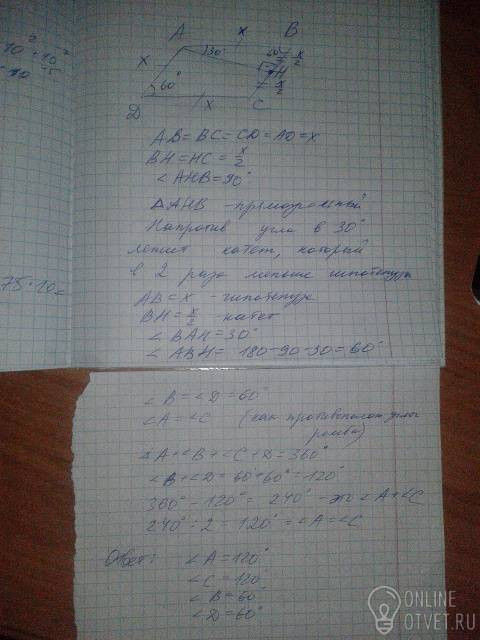 10² · 10⁻⁷
A x B
30°
60°
x
H
x/2
x/2
60°
Д x C
AB = BC = CD = AD = x
BH = HC = x/2
∠AHB = 90°
ΔAHB - прямоугольный
Напротив угла в 30°
лежит катет, который
в 2 раза меньше гипотенузы
75 · 10 =
AB = x - гипотенуза
BH = x/2 катет
∠BAH = 30°
∠ABH = 180-90-30 = 60°
∠B = ∠D = 60°
∠A = ∠C (как противополож. углы
ромба)
∠A+∠B+∠C+D = 360°
∠B+∠D = 60°+60° = 120°
360° - 120° = 240° - это ∠A+∠C
240° : 2 = 120° = ∠A = ∠C
Ответ: ∠A = 120°
∠C = 120°
∠B = 60°
∠D = 60°
ONLINE
OTVET.RU